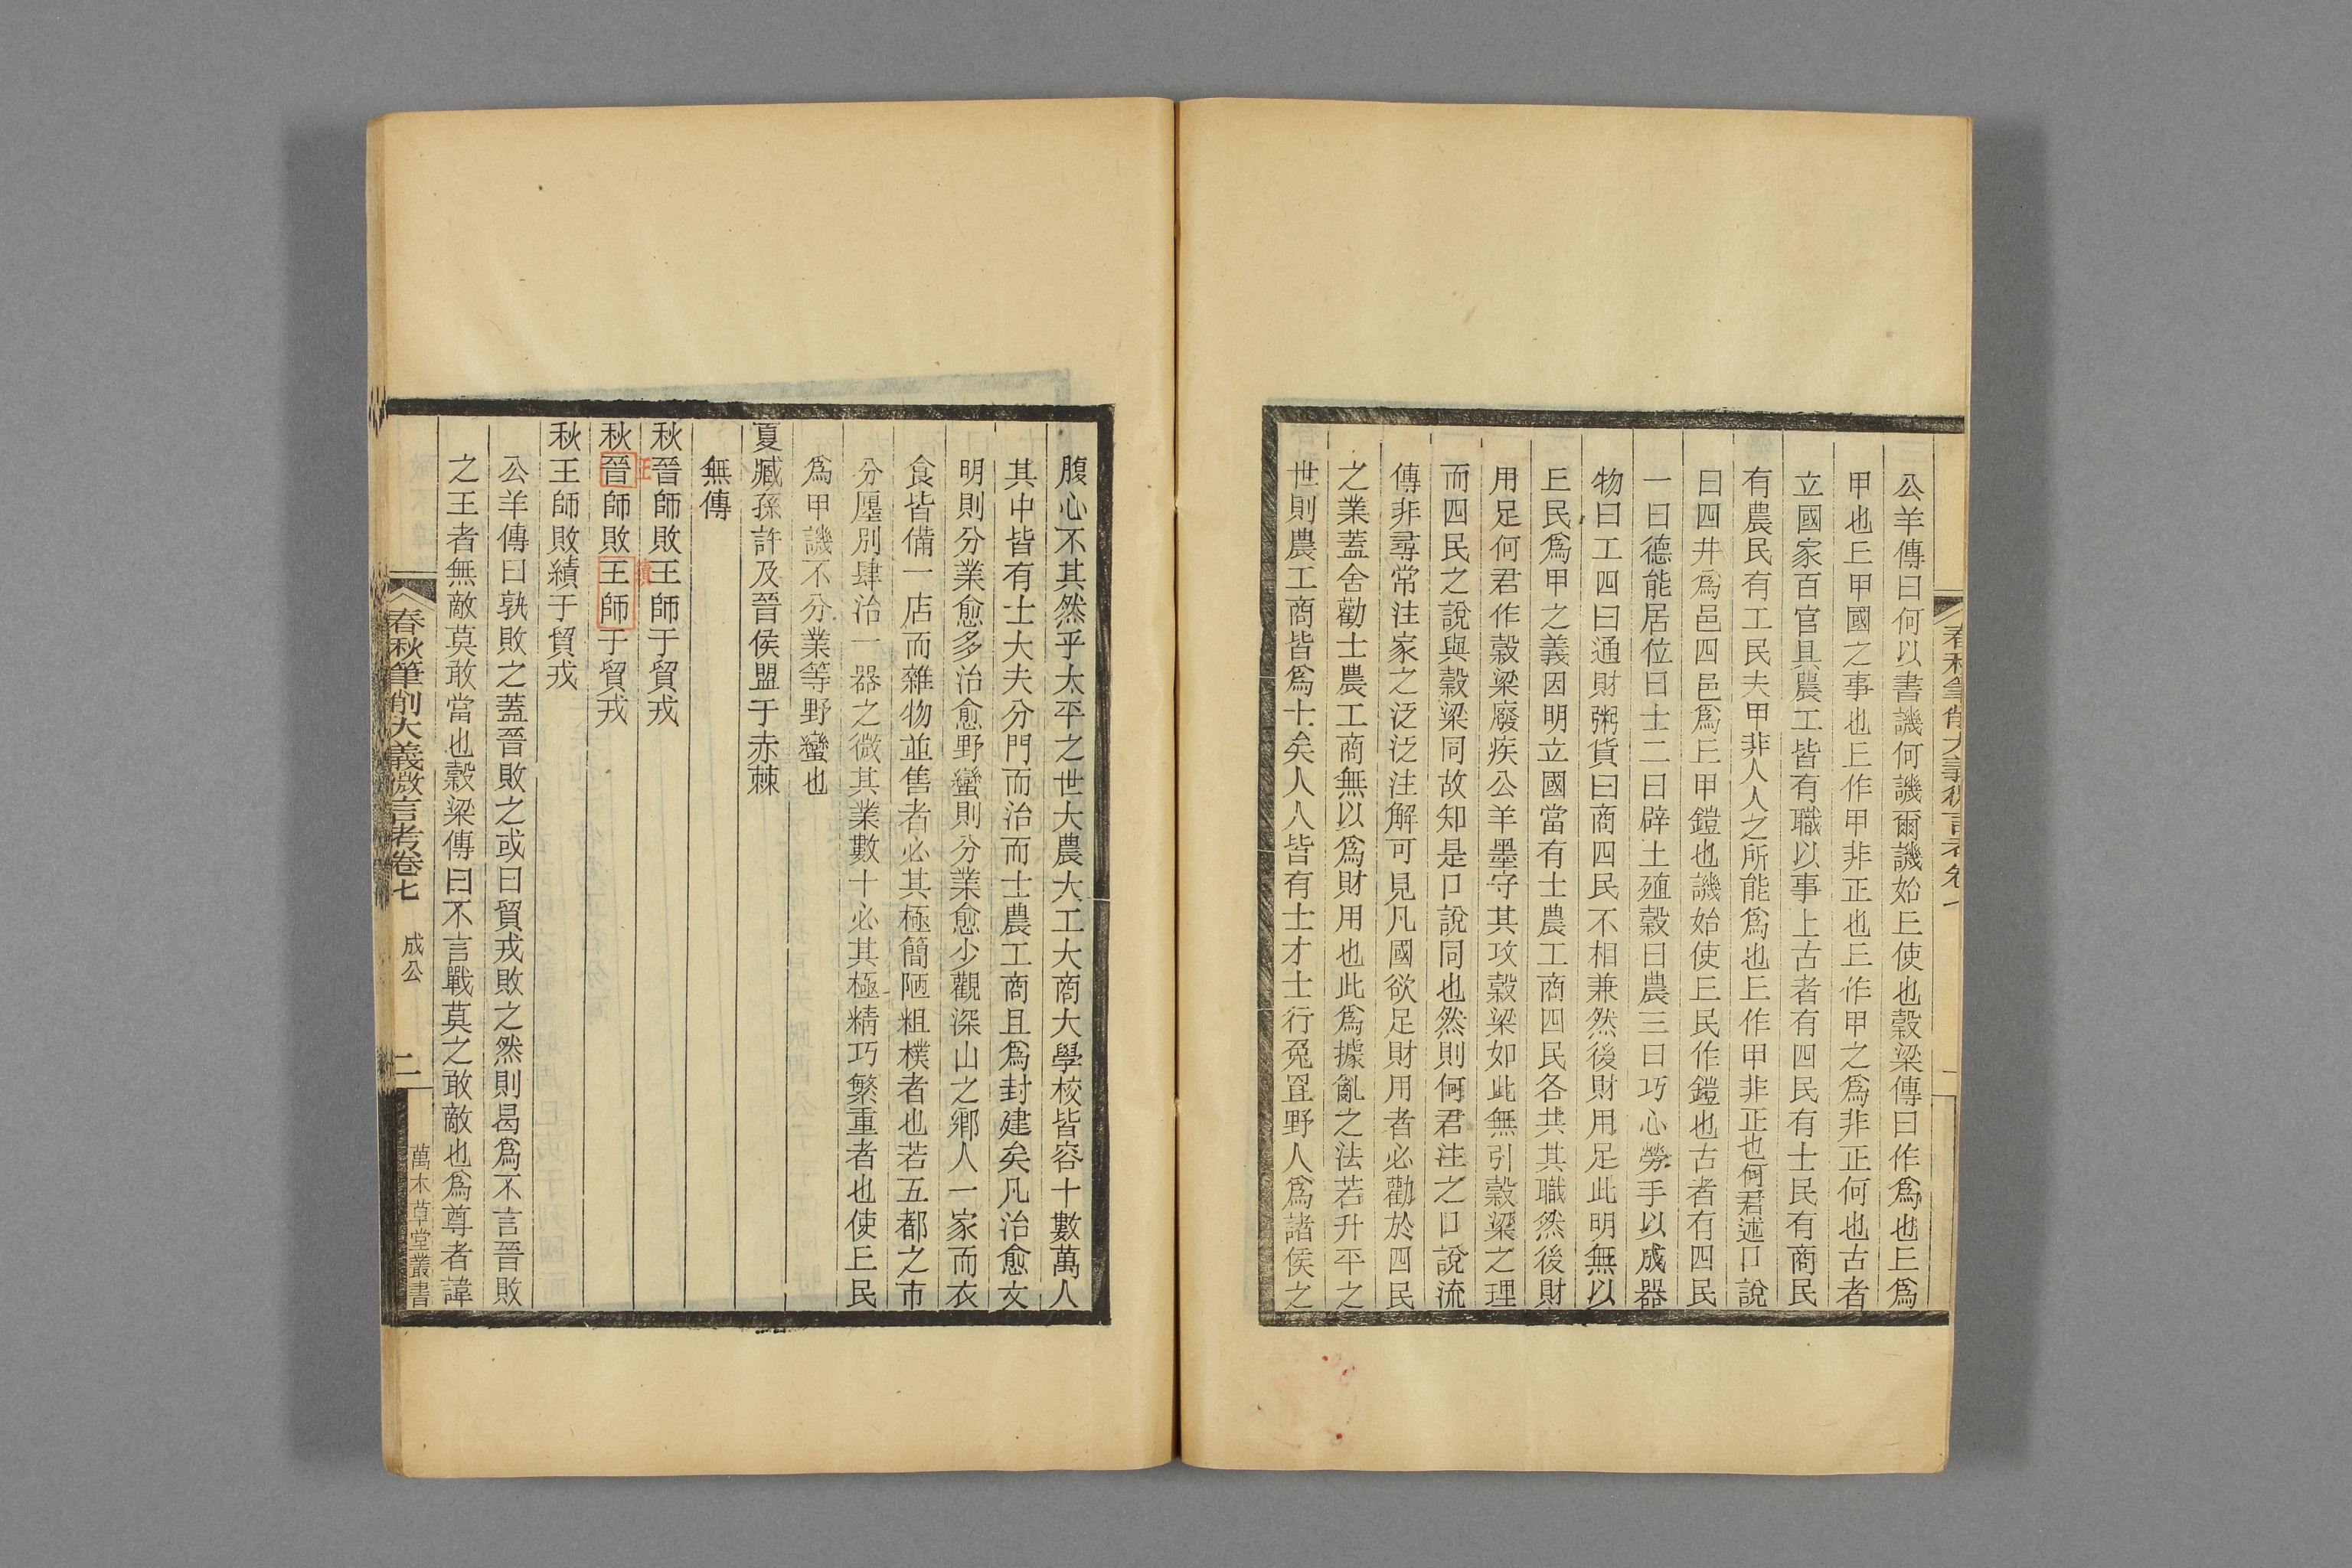 公羊傳曰何以書譏何譏爾譏始丘使也穀梁傳曰作爲也丘爲
甲也丘甲國之事也丘作甲非正也丘作甲之爲非正何也古者
立國家百官具農工皆有職以事上古者有四民有士民有商民
有農民有工民夫甲非人人之所能爲也丘作甲非正也何君述口說
曰四井爲邑四邑爲丘甲鎧也譏始使丘民作鎧也古者有四民
一曰德能居位曰士二曰辟土殖穀曰農三曰巧心勞手以成器
物曰工四曰通財粥貨曰商四民不相兼然後財用足此明無以
丘民爲甲之義因明立國當有士農工商四民各共其職然後財
用足何君作穀梁廢疾公羊墨守其攻穀梁如此無引穀梁之理
而四民之說與穀梁同故知是口說同也然則何君注之口說流
傳非尋常注家之泛泛注解可見凡國欲足財用者必勸於四民
之業蓋舍勸士農工商無以爲財用也此爲據亂之法若升平之
世則農工商皆爲士矣人人皆有士才士行兔罝野人爲諸侯之
腹心不其然乎太平之世大農大工大商大學校皆容十數萬人
其中皆有士大夫分門而治而士農工商且爲封建矣凡治愈文
明則分業愈多治愈野蠻則分業愈少觀深山之鄉人一家而衣
食皆備一店而雜物並售者必其極簡陋粗樸者也若五都之市
分廛別肆治一器之微其業數十必其極精巧繁重者也使丘民
爲甲譏不分業等野蠻也
夏臧孫許及晉侯盟于赤棘
無傳
秋晉師敗王師于貿戎
秋晉師敗王師于貿戎
王
績
秋王師敗績于貿戎
公羊傳曰孰敗之蓋晉敗之或曰貿戎敗之然則曷爲不言晉敗
之王者無敵莫敢當也穀梁傳曰不言戰莫之敢敵也爲尊者諱
春秋筆削大義微言考卷七 成公 二 萬木草堂叢書